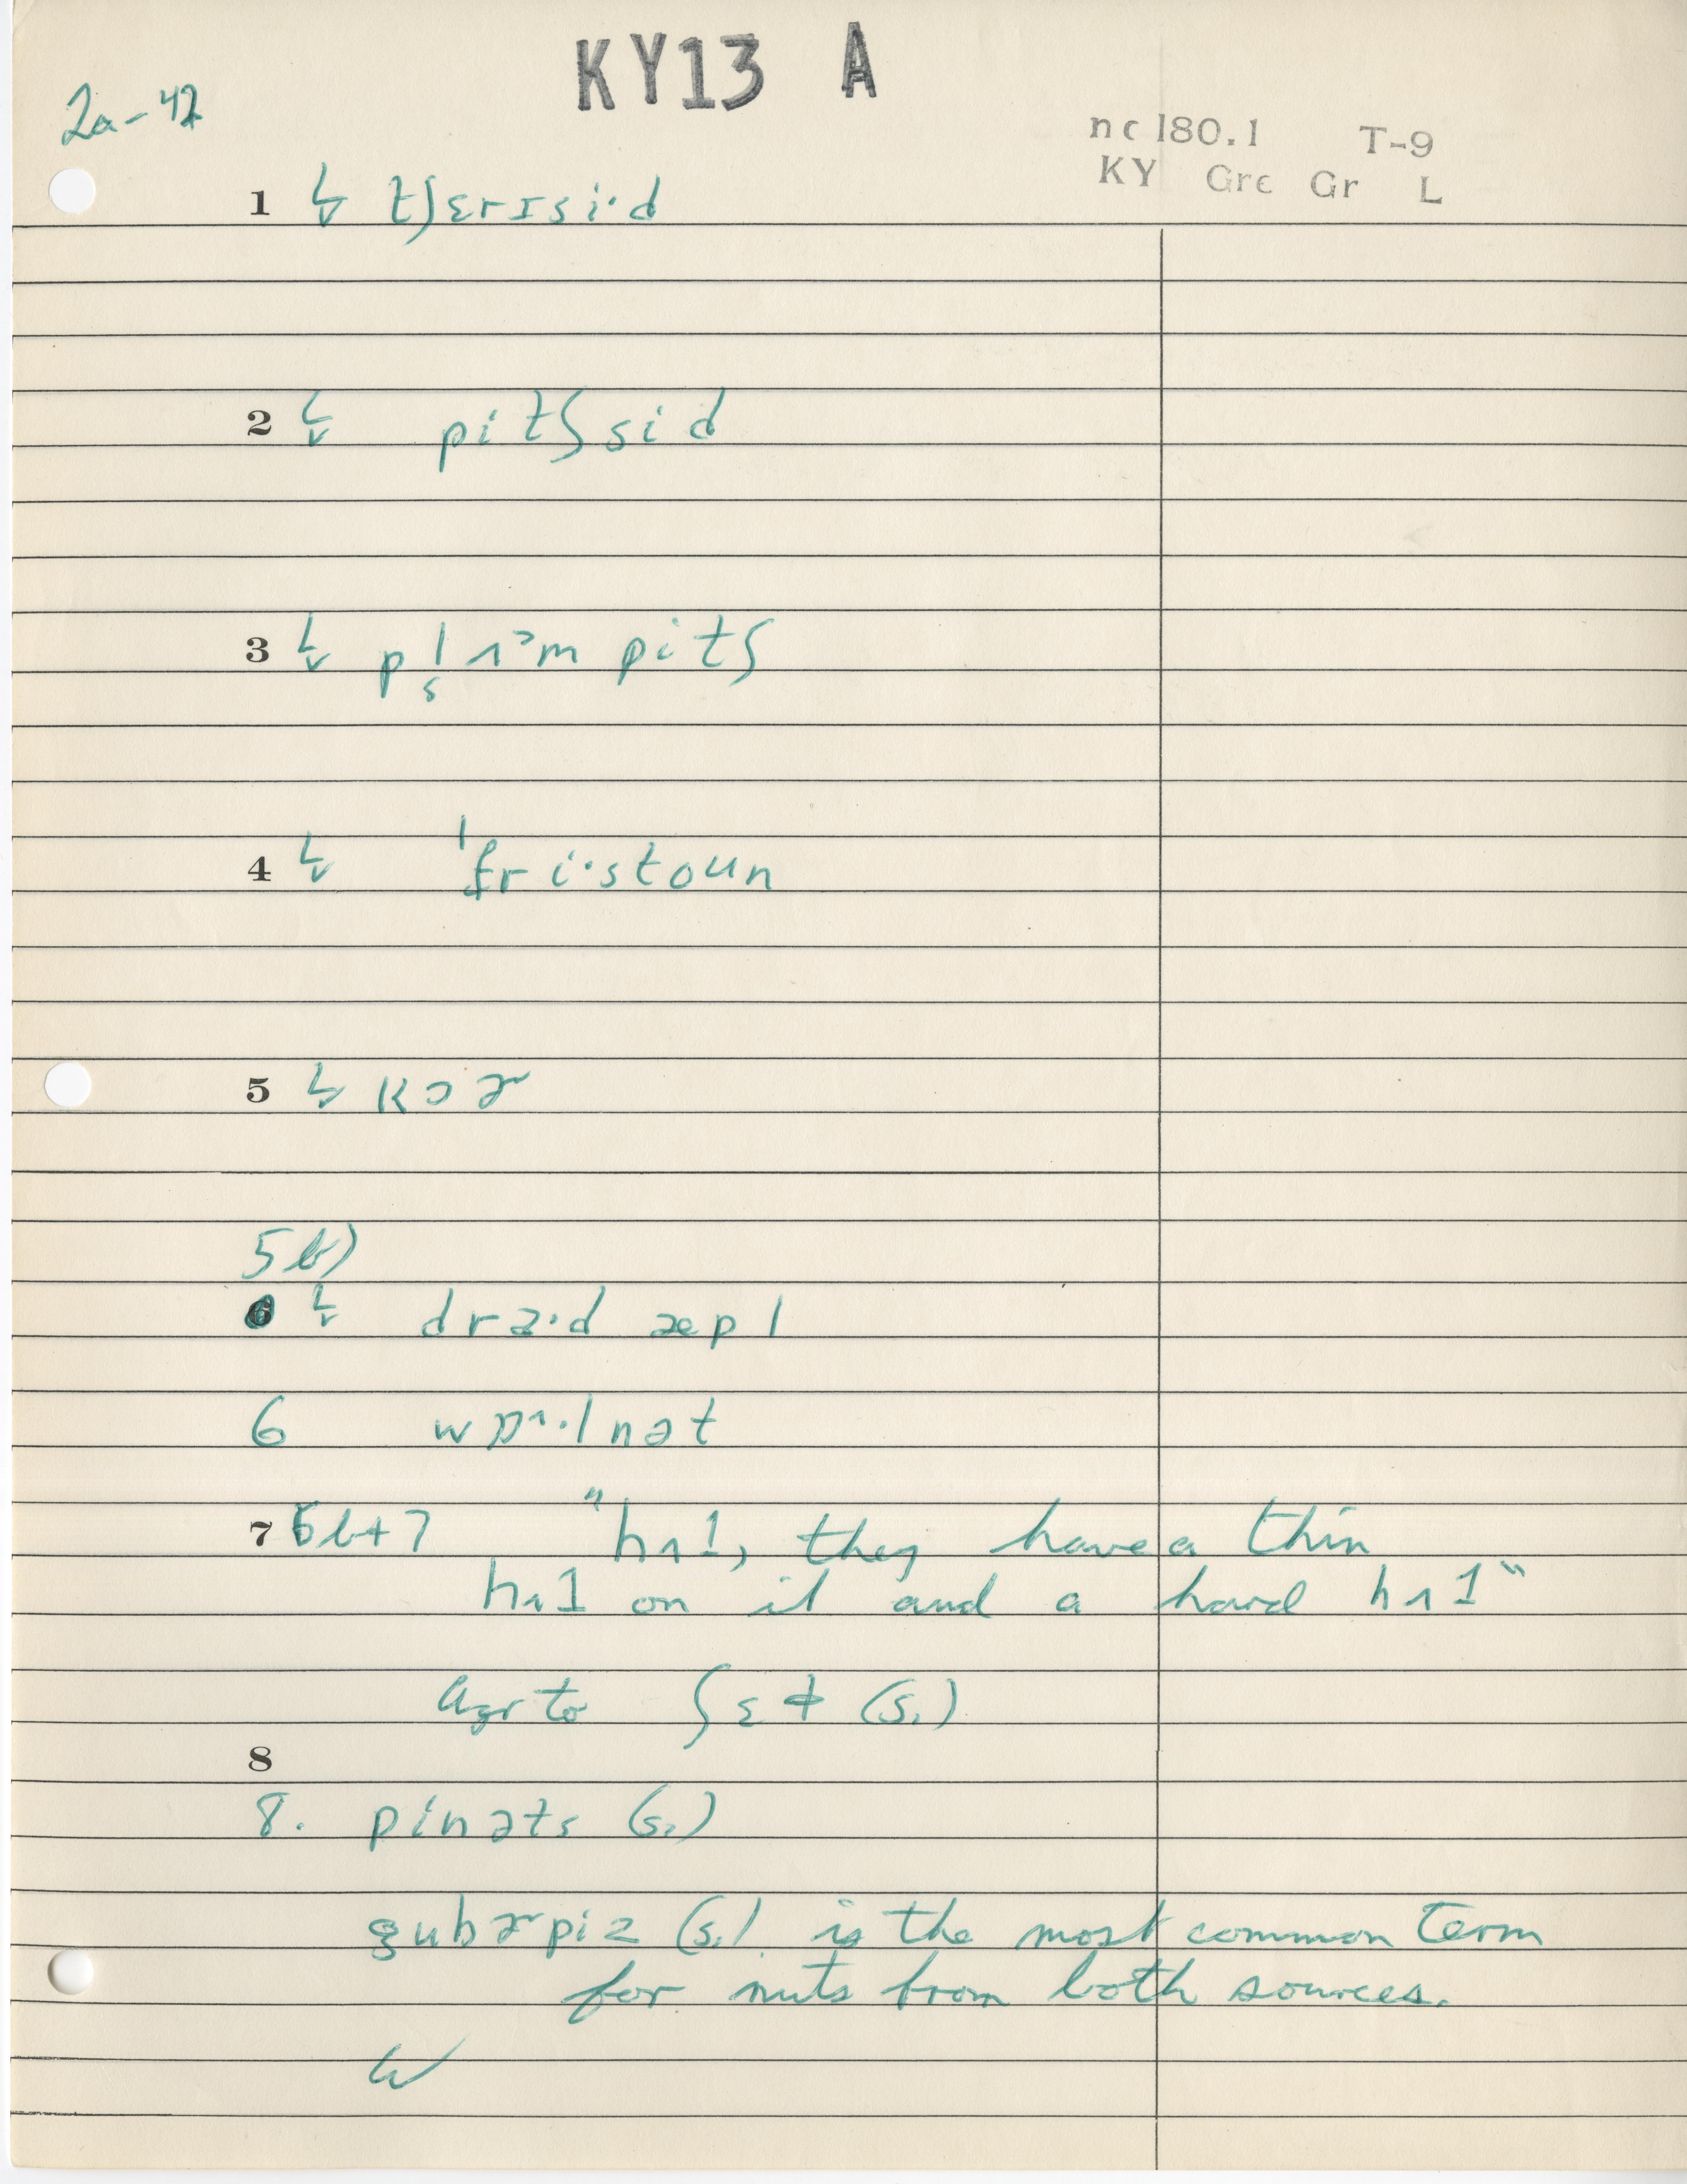 KY13 A
2a-42
nc 180.1 T-9
KY Gre Gr L
1 ↳ tʃɛrɪsi·d
2 ↳ pitʃsid
3 ↳ pitʃ
4 ↳ ˈfri·stoun
5 ↳ kɔɚ
5b)
6 ↳ æpl
6
7 5b+7 "hʌl, they have a thin
hʌl on it and a hard hʌl"
agr to ʃɛɫ (s.)
8
8. pinəts (s.)
gubɚpiz (s.) is the most common term
for nuts from both sources.
W